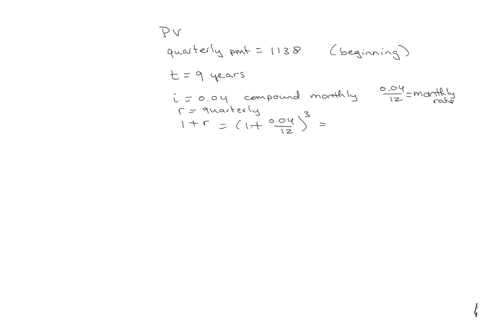 PV
quarterly pmt = 1138 (beginning)
t = 9 years
i = 0.04 compound monthly 0.04/12 = monthly rate
r = quarterly
1 + r = (1 + 0.04/12)^3 =